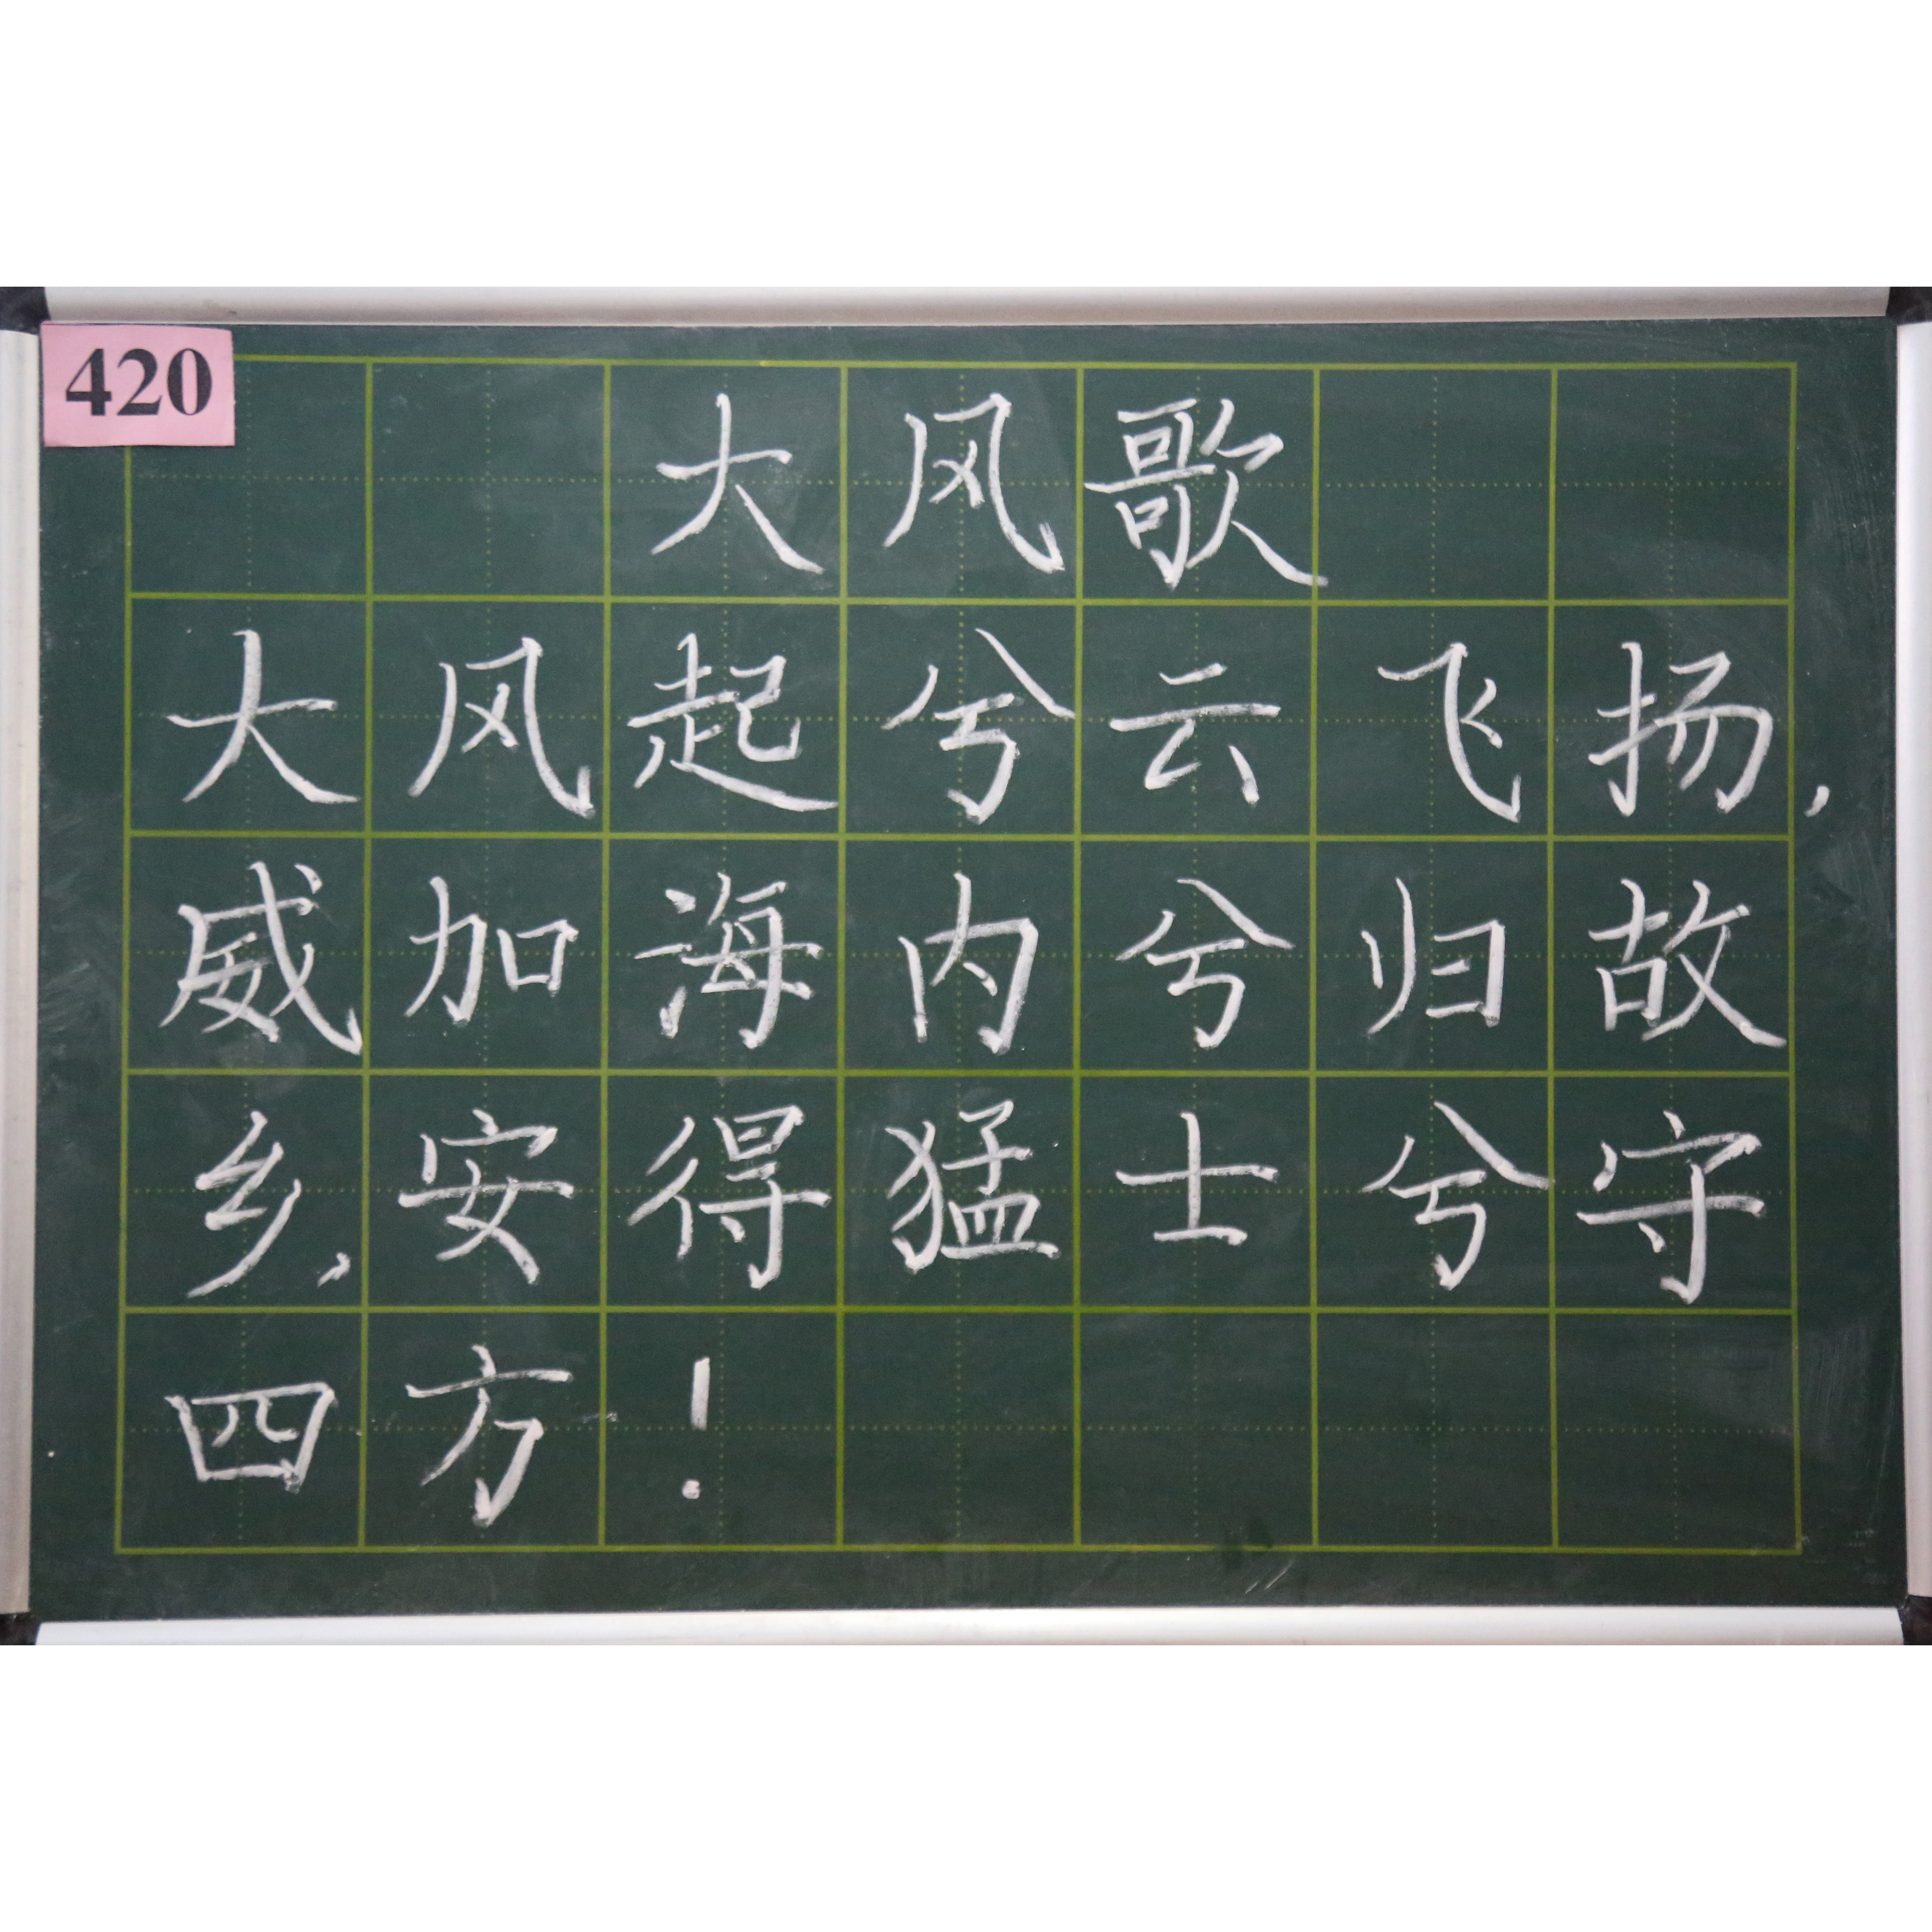 420
大风歌
大风起兮云飞扬,
威加海内兮归故
乡,安得猛士兮守
四方!